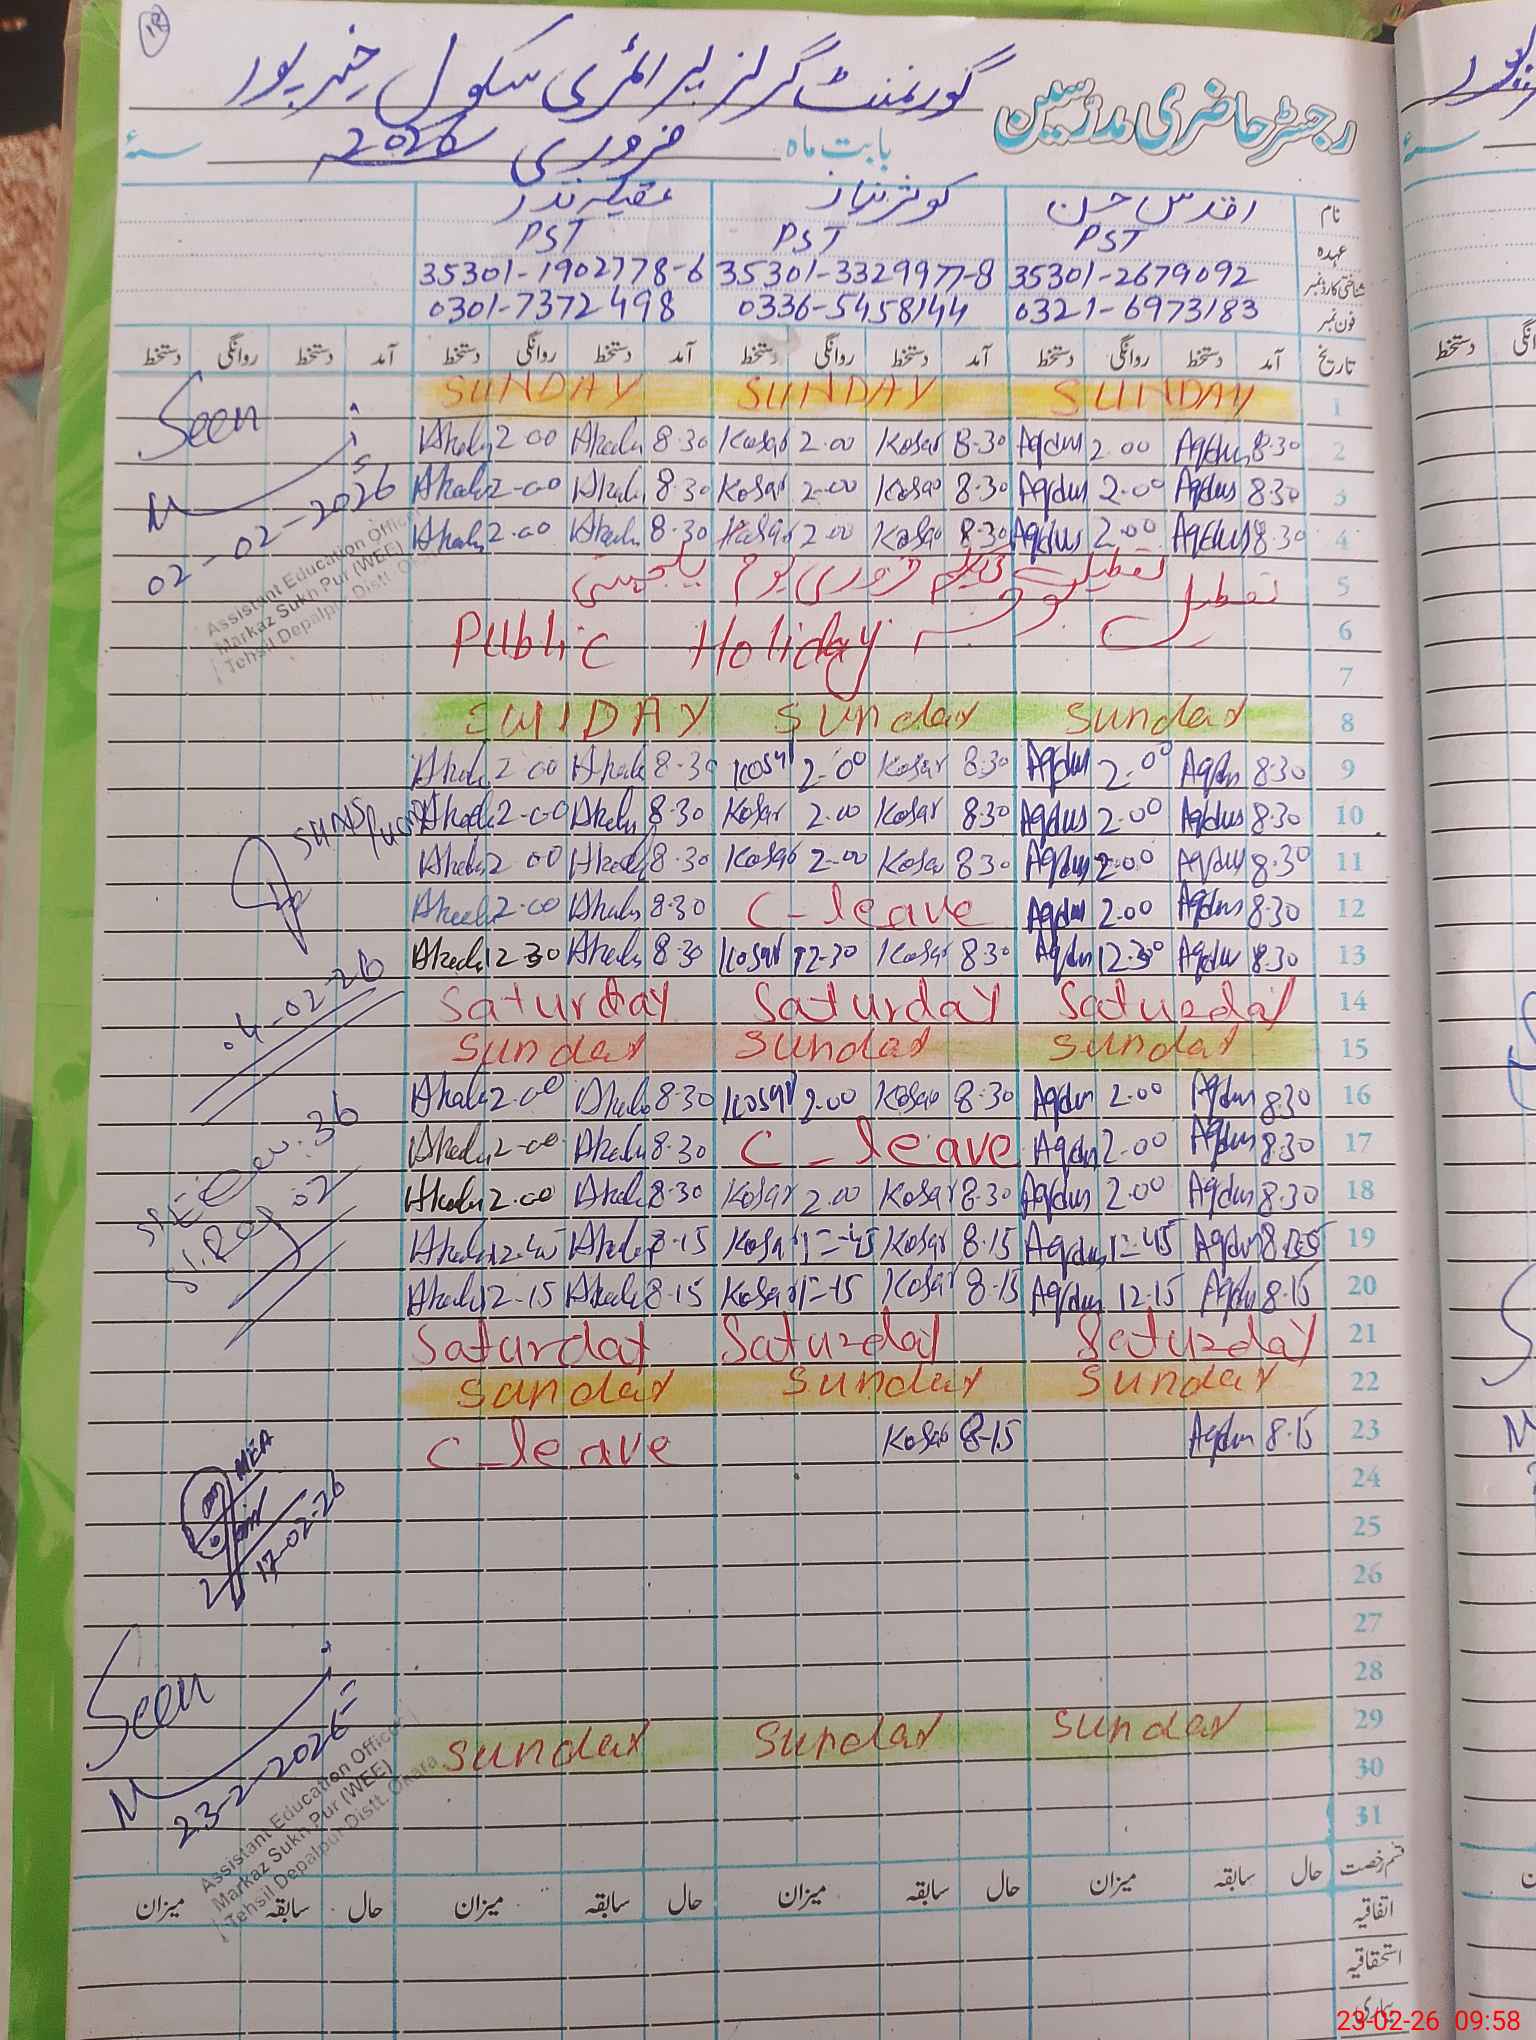 12
رجسٹر حاضری مدرسین گورنمنٹ گرلز پرائمری سکول خضر پور
بابت ماہ فروری 2026 سنہ
نام اقدس حسن کوثر نیاز عقیلہ نذر
عہدہ PST PST PST
شناختی کارڈ نمبر 35301-2679092 35301-3329977-8 35301-1902778-6
فون نمبر 0321-6973183 0336-5458144 0301-7372498
تاریخ آمد دستخط روانگی دستخط آمد دستخط روانگی دستخط آمد دستخط روانگی دستخط آمد دستخط روانگی دستخط
1 SUNDAY SUNDAY SUNDAY
2 8.30 Aqdus 2.00 Aqdus 8.30 Kosar 2.00 Kosar 8.30 Akeela 2.00 Akeela
3 8.30 Aqdus 2.00 Aqdus 8.30 Kosar 2.00 Kosar 8.30 Akeela 2.00 Akeela
4 8.30 Aqdus 2.00 Aqdus 8.30 Kosar 2.00 Kosar 8.30 Akeela 2.00 Akeela
5 تعطیل فروری یوم یکجہتی
6 Public Holiday
7
8 SUNDAY Sunday Sunday
9 8.30 Aqdus 2.00 Aqdus 8.30 Kosar 2.00 Kosar 8.30 Akeela 2.00 Akeela
10 8.30 Aqdus 2.00 Aqdus 8.30 Kosar 2.00 Kosar 8.30 Akeela 2.00 Akeela
11 8.30 Aqdus 2.00 Aqdus 8.30 Kosar 2.00 Kosar 8.30 Akeela 2.00 Akeela
12 8.30 Aqdus 2.00 Aqdus C-leave 8.30 Akeela 2.00 Akeela
13 8.30 Aqdus 12.30 Aqdus 8.30 Kosar 12-30 Kosar 8.30 Akeela 12.30 Akeela
14 Saturday Saturday Saturday
15 Sunday Sunday Sunday
16 8.30 Aqdus 2.00 Aqdus 8.30 Kosar 2.00 Kosar 8.30 Akeela 2.00 Akeela
17 8.30 Aqdus 2.00 Aqdus C-leave 8.30 Akeela 2.00 Akeela
18 8.30 Aqdus 2.00 Aqdus 8.30 Kosar 2.00 Kosar 8.30 Akeela 2.00 Akeela
19 Aqdus 1=45 Aqdus 8.15 Kosar 1=45 Kosar 8.15 Akeela 12.45 Akeela
20 8.15 Aqdus 12.15 Aqdus 8.15 Kosar 1=15 Kosar 8.15 Akeela 12-15 Akeela
21 Saturday Saturday Saturday
22 Sunday Sunday Sunday
23 8.15 Aqdus 8-15 Kosar C-leave
24
25
26
27
28
29 Sunday Sunday Sunday
30
31
قسم رخصت حال سابقہ میزان حال سابقہ میزان حال سابقہ میزان حال سابقہ میزان
اتفاقیہ
استحقاقیہ
بیماری
Seen
02-02-2026
Assistant Education Officer
Markaz Sukh Pur (WEE)
Tehsil Depalpur Distt. Okara
04-02-26
MEA
17-02-26
Seen
23-2-2026
Assistant Education Officer
Markaz Sukh Pur (WEE)
Tehsil Depalpur Distt. Okara
23-02-26 09:58